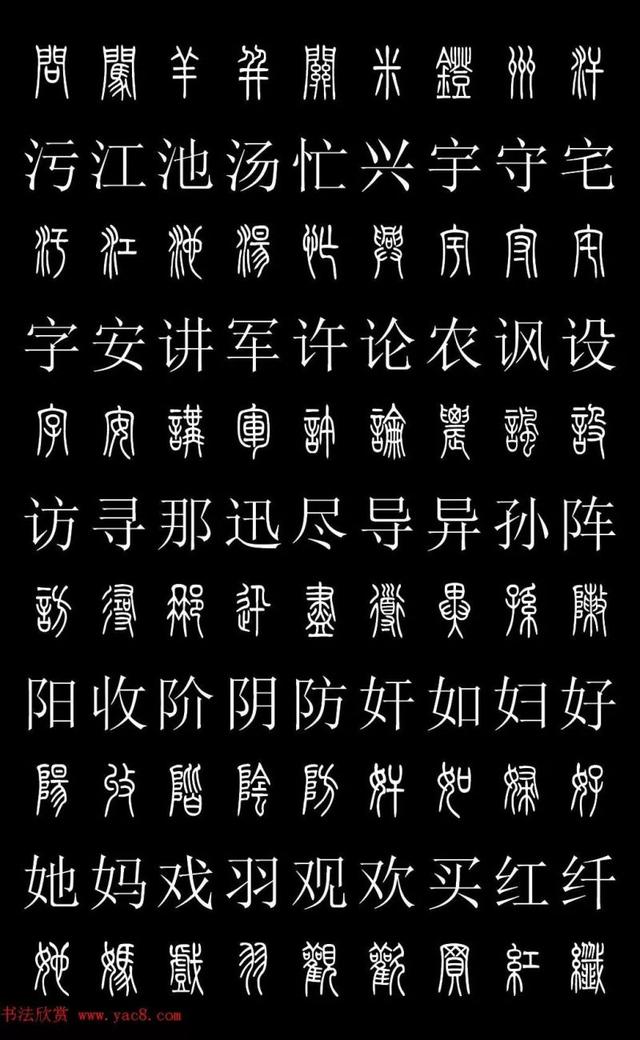 問闖羊并關米鐙州汗
污江池汤忙兴宇守宅
汚江池湯忙興宇守宅
字安讲军许论农讽设
字安講軍許論農諷設
访寻那迅尽导异孙阵
訪尋那迅盡導異孫陳
阳收阶阴防奸如妇好
陽收階陰防奸如婦好
她妈戏羽观欢买红纤
她媽戲羽觀歡買紅纖
书法欣赏 www.yac8.com